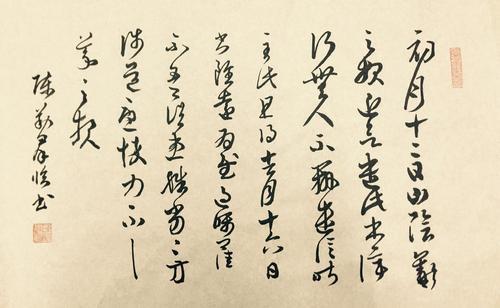 初月十二日山陰羲
之報近欲遣此書停
行無人不辦遣信昨
至此且得去月十六日
書雖遠為慰過囑卿
不吾諸患殊劣方
涉道憂悴力不一
羲之報
陳 書